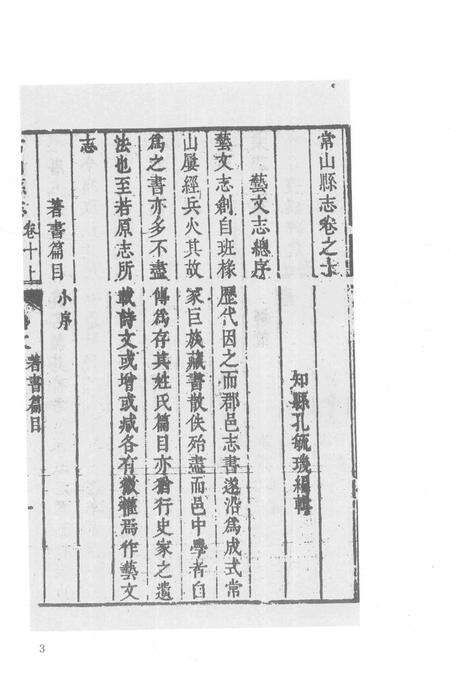 常山縣志卷之十
知縣孔毓璣編輯
藝文志總序
藝文志創自班椽歷代因之而郡邑志書遂沿為成式常
山屢經兵火其故家巨族藏書散佚殆盡而邑中學者自
為之書亦多不盡傳為存其姓氏篇目亦猶行史家之遺
法也至若原志所載詩文或增或減各有微權焉作藝文
志
著書篇目 小序
卷十上
著書篇目
3